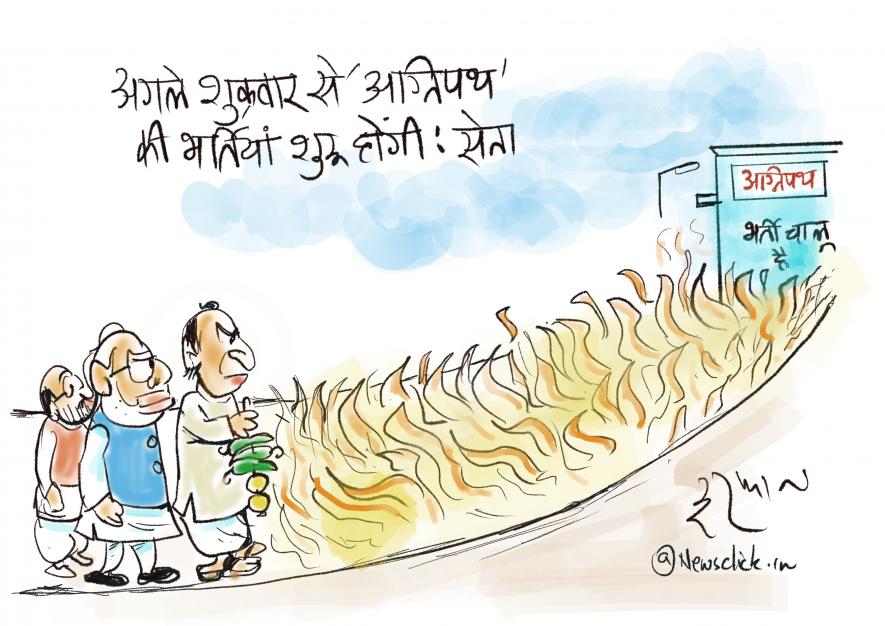 अगले शुक्रवार से 'अग्निपथ'
की भर्तियां शुरू होंगी : सेना
अग्निपथ
भर्ती चालू
है
इरफान
@Newsclick.in